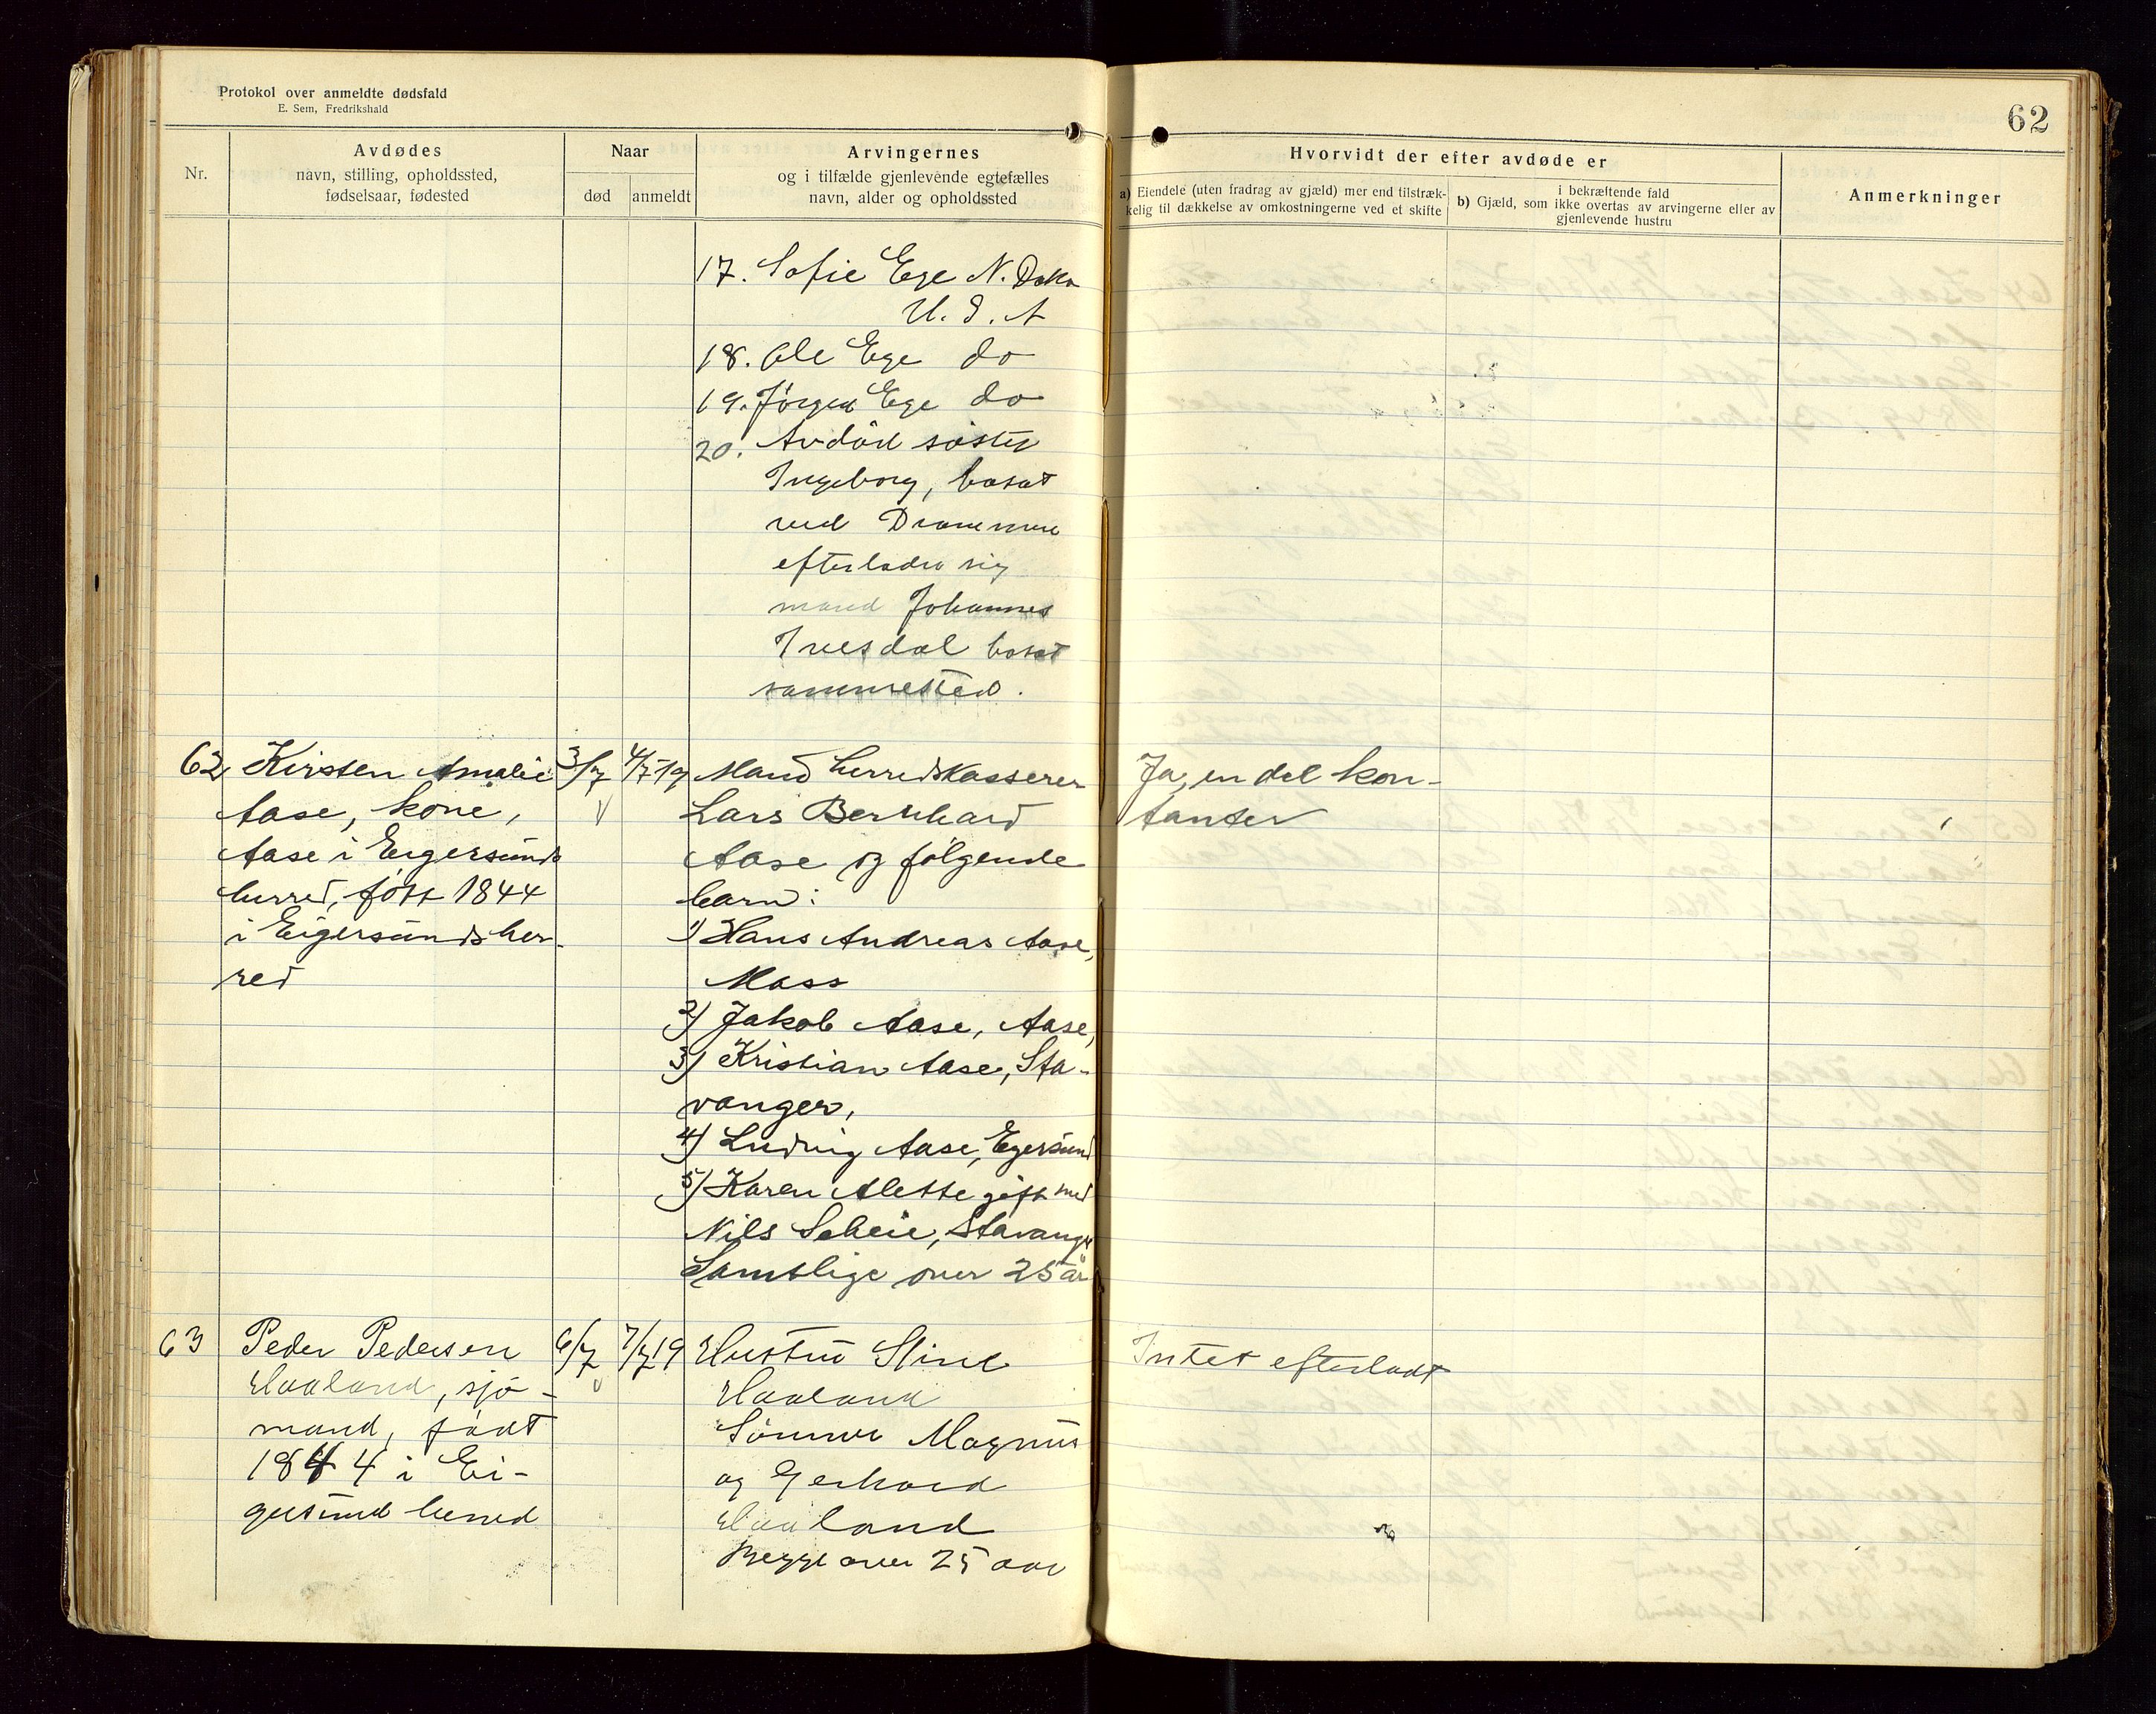 Protokol over anmeldte dødsfald
E. Sem, Fredrikshald
62
Nr.
Avdødes
navn, stilling, opholdssted,
fødselsaar, fødested
Naar
død
anmeldt
Arvingernes
og i tilfælde gjenlevende egtefælles
navn, alder og opholdssted
Hvorvidt der efter avdøde er
a) Eiendele (uten fradrag av gjæld) mer end tilstræk-
kelig til dækkelse av omkostningerne ved et skifte
i bekræftende fald
b) Gjæld, som ikke overtas av arvingerne eller av
gjenlevende hustru
Anmerkninger
17. Sofie Ege N. Dako
U. S. A
18. Ole Ege do
19. Jörgen Ege do
20. Avdöd söster
Ingeborg, bosat
ved Drammen
efterlader sig
mand Johannes
Ivesdal bosat
sammested.
62
Kirsten Amalie
Aase, kone,
Aase i Eigersunds
herred, født 1844
i Eigersunds her-
red
3/7
4/7-19
Mand herredskasserer
Lars Bernhard
Aase og følgende
barn:
1) Hans Andreas Aase,
Mass
2) Jakob Aase, Aase,
3) Kristian Aase, Sta-
vanger,
4) Ludvig Aase, Egersund
5) Karen Alette gift med
Nils Scheie, Stavanger
Samtlige over 25 år
Ja, en del kon-
tanter
63
Peder Pedersen
Haaland, sjö-
mand, födt
1844 i Ei-
gersund herred
6/7
7/7 19
Hustru Stine
Haaland
Sönner Magnus
og Gerhard
Haaland
Begge over 25 aar
Intet efterladt